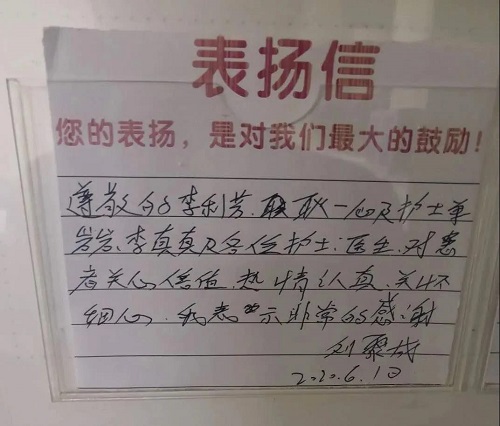 表扬信
您的表扬，是对我们最大的鼓励！
尊敬的李利芳、耿一心及护士单
岩岩、李真真及各位护士、医生、对患
者关心倍值、热情认真、关怀
细心、我表示非常的感谢
刘聚成
2020.6.10